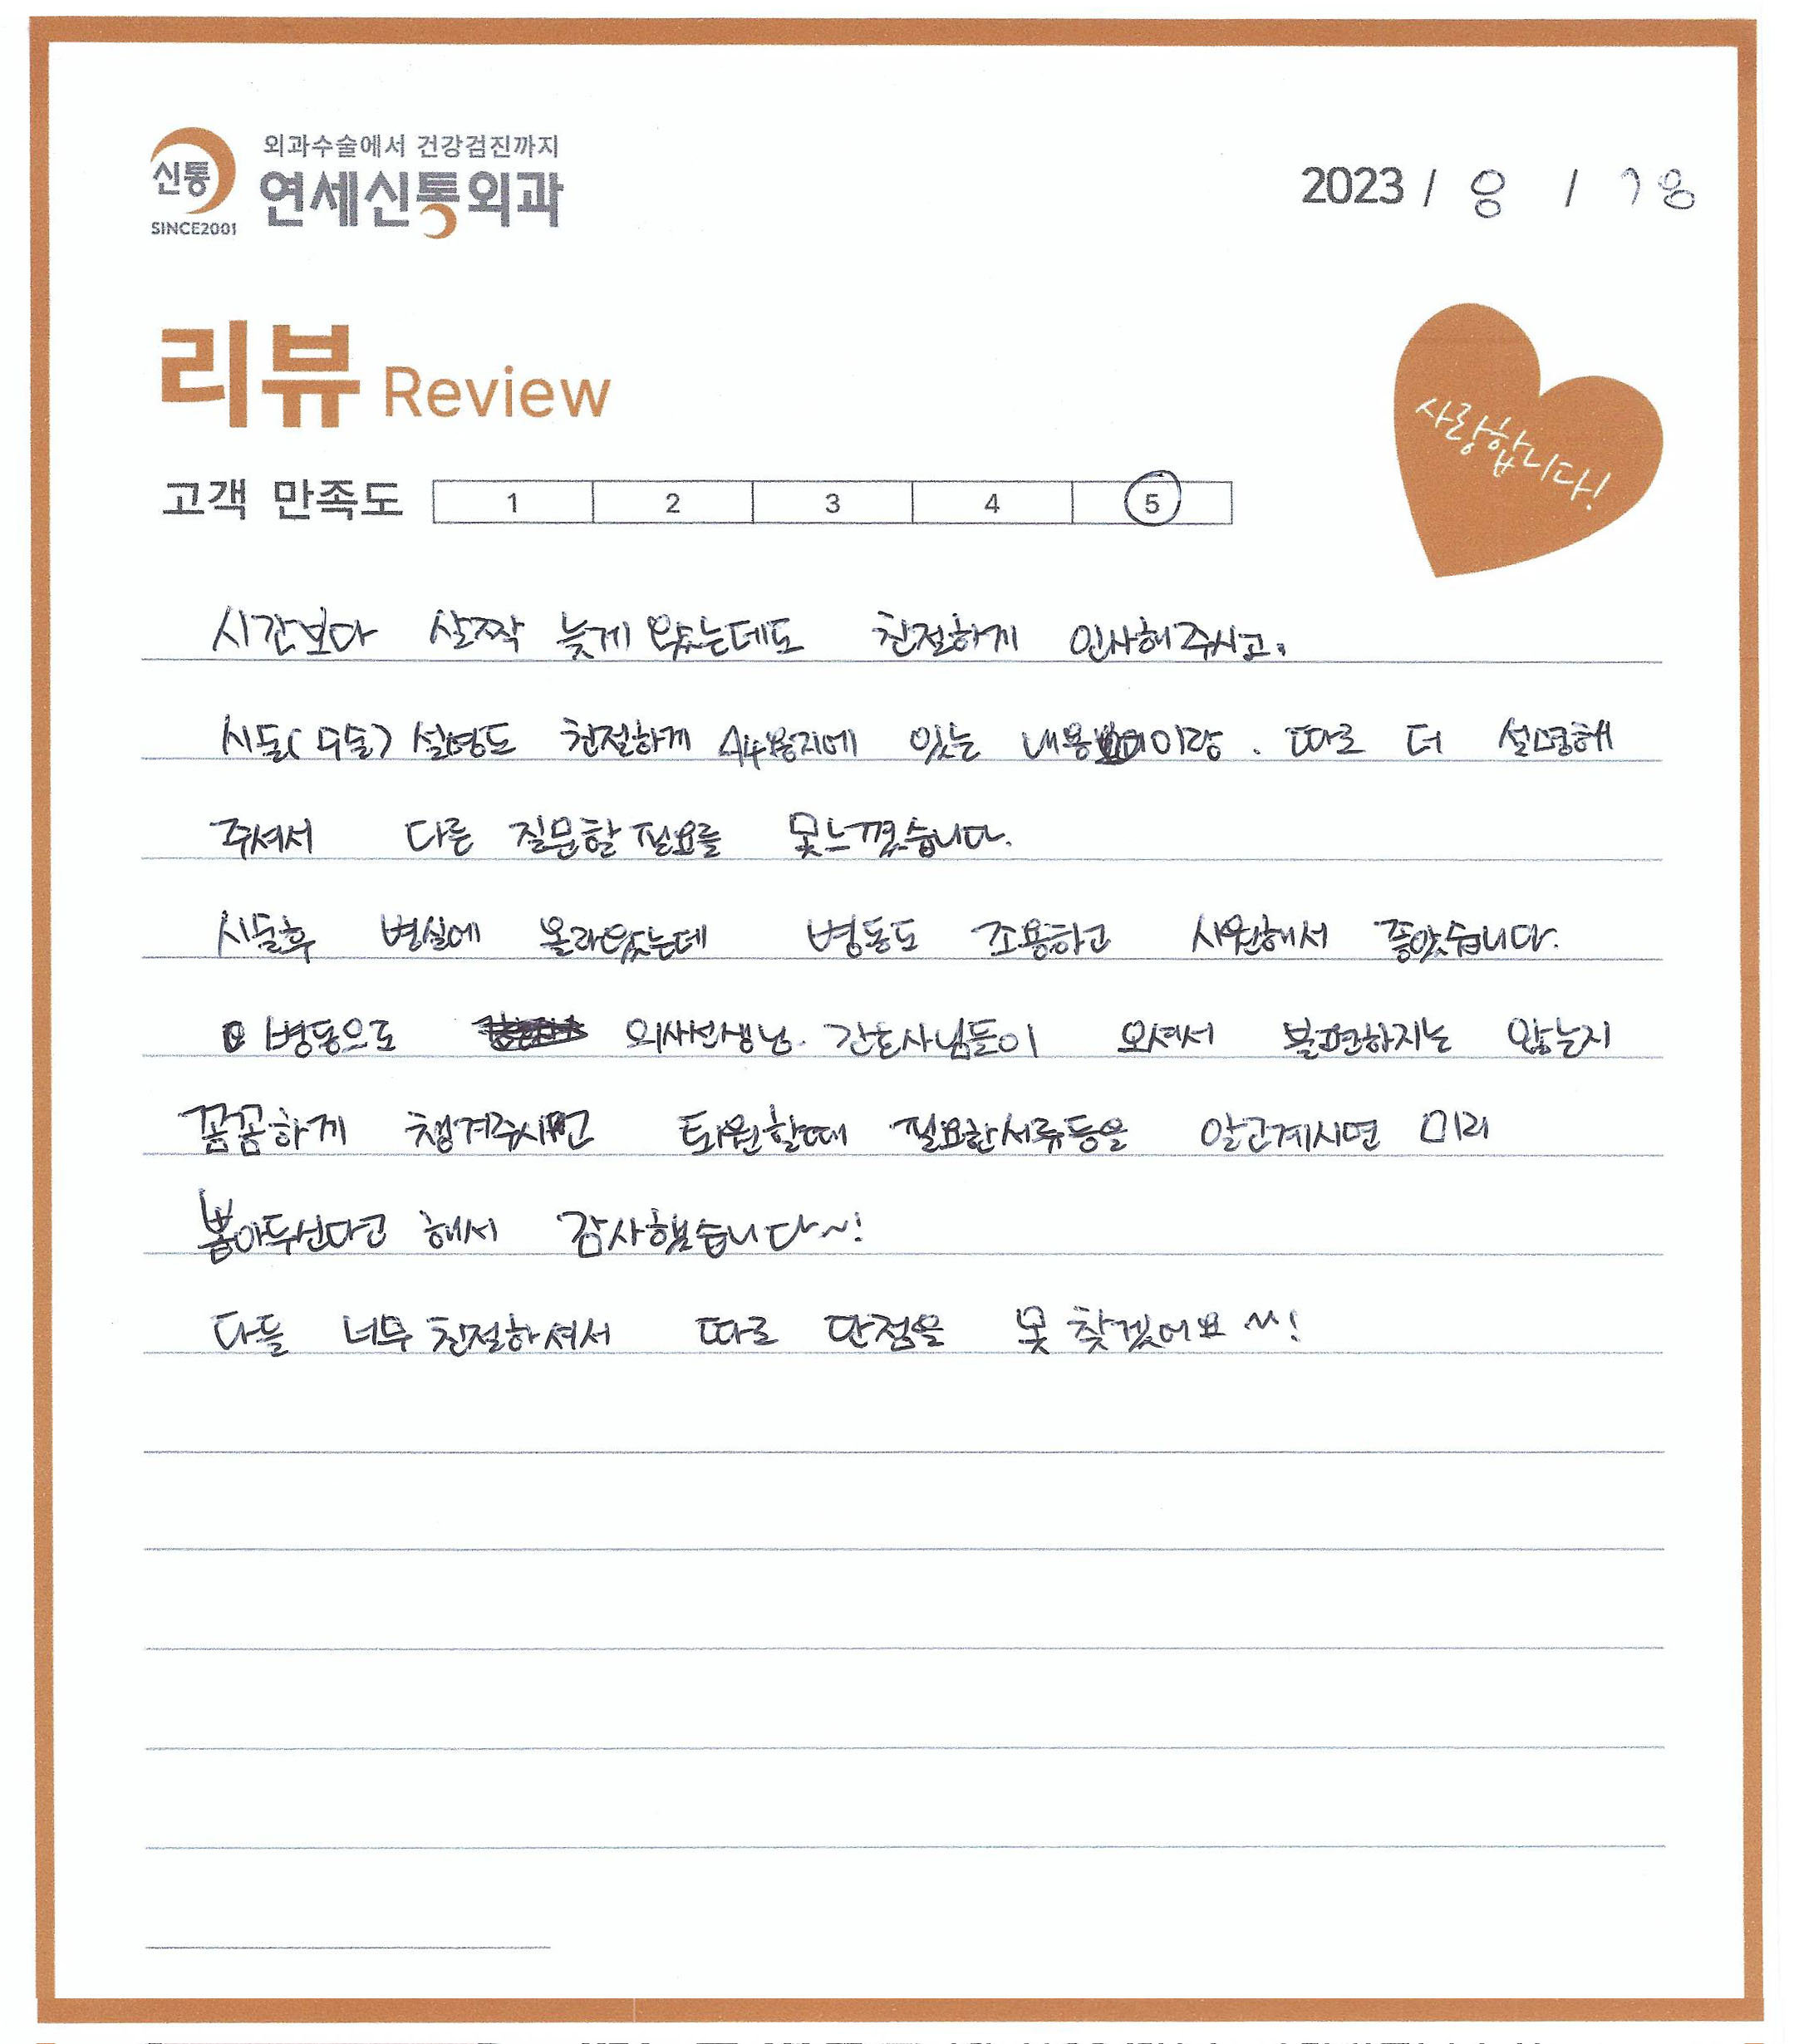 외과수술에서 건강검진까지
신통 연세신통외과
SINCE2001
2023 / 8 / 18
리뷰 Review
사랑합니다!
고객 만족도 1 2 3 4 5
시간보다 살짝 늦게 왔는데도 친절하게 인사해주시고.
시술(수술) 설명도 친절하게 A4용지에 있는 내용이랑. 따로 더 설명해
주셔서 다른 질문할 필요를 못느꼈습니다.
시술후 병실에 올라왔는데 병동도 조용하고 시원해서 좋았습니다.
병동으로 의사선생님. 간호사님들이 오셔서 불편하지는 않는지
꼼꼼하게 챙겨주시고 퇴원할때 필요한서류등을 알고계시면 미리
뽑아두신다고 해서 감사했습니다~!
다들 너무 친절하셔서 따로 단점을 못 찾겠어요~!